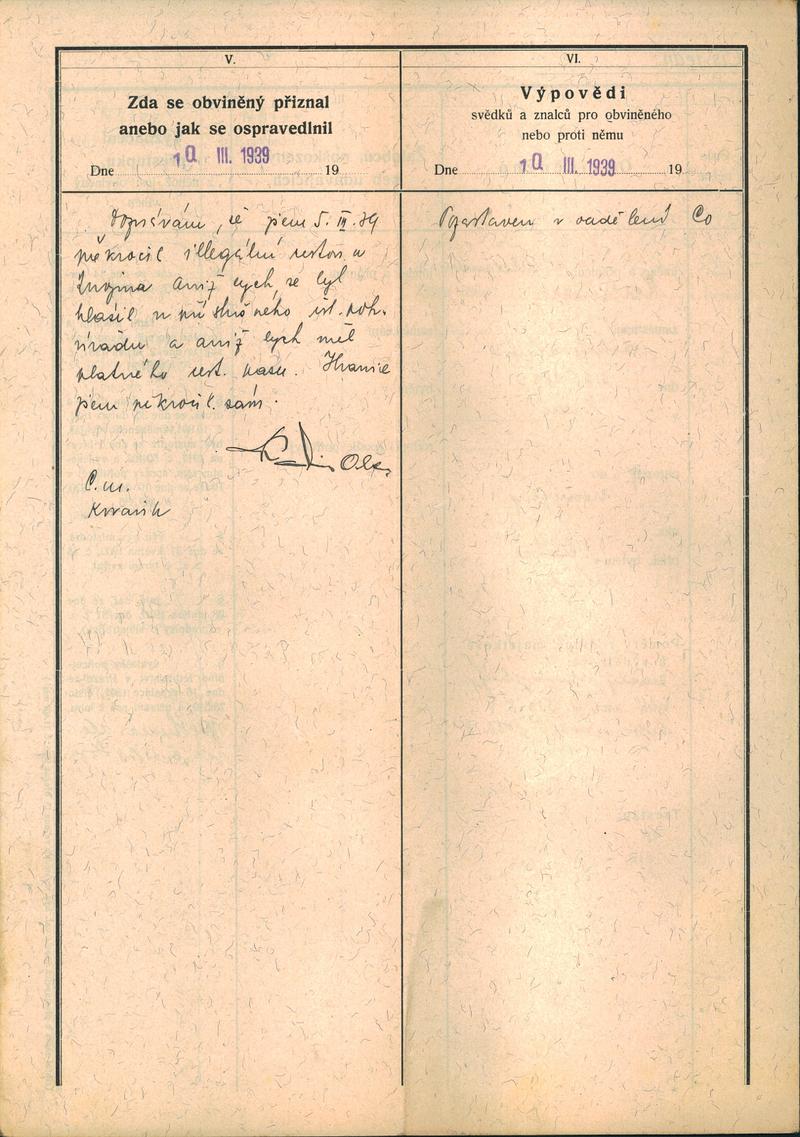 V.
Zda se obviněný přiznal
anebo jak se ospravedlnil
Dne 10 III. 1939 19
že jsem 5. III. 39
překročil illegálně u
aniž bych se byl
hlásil u příslušného
úřadu a aniž bych měl
platného pasu. Hranice
jsem překročil sám.
C. m.
VI.
Výpovědi
svědků a znalců pro obviněného
nebo proti němu
Dne 10 III. 1939 19
v oddělení Co